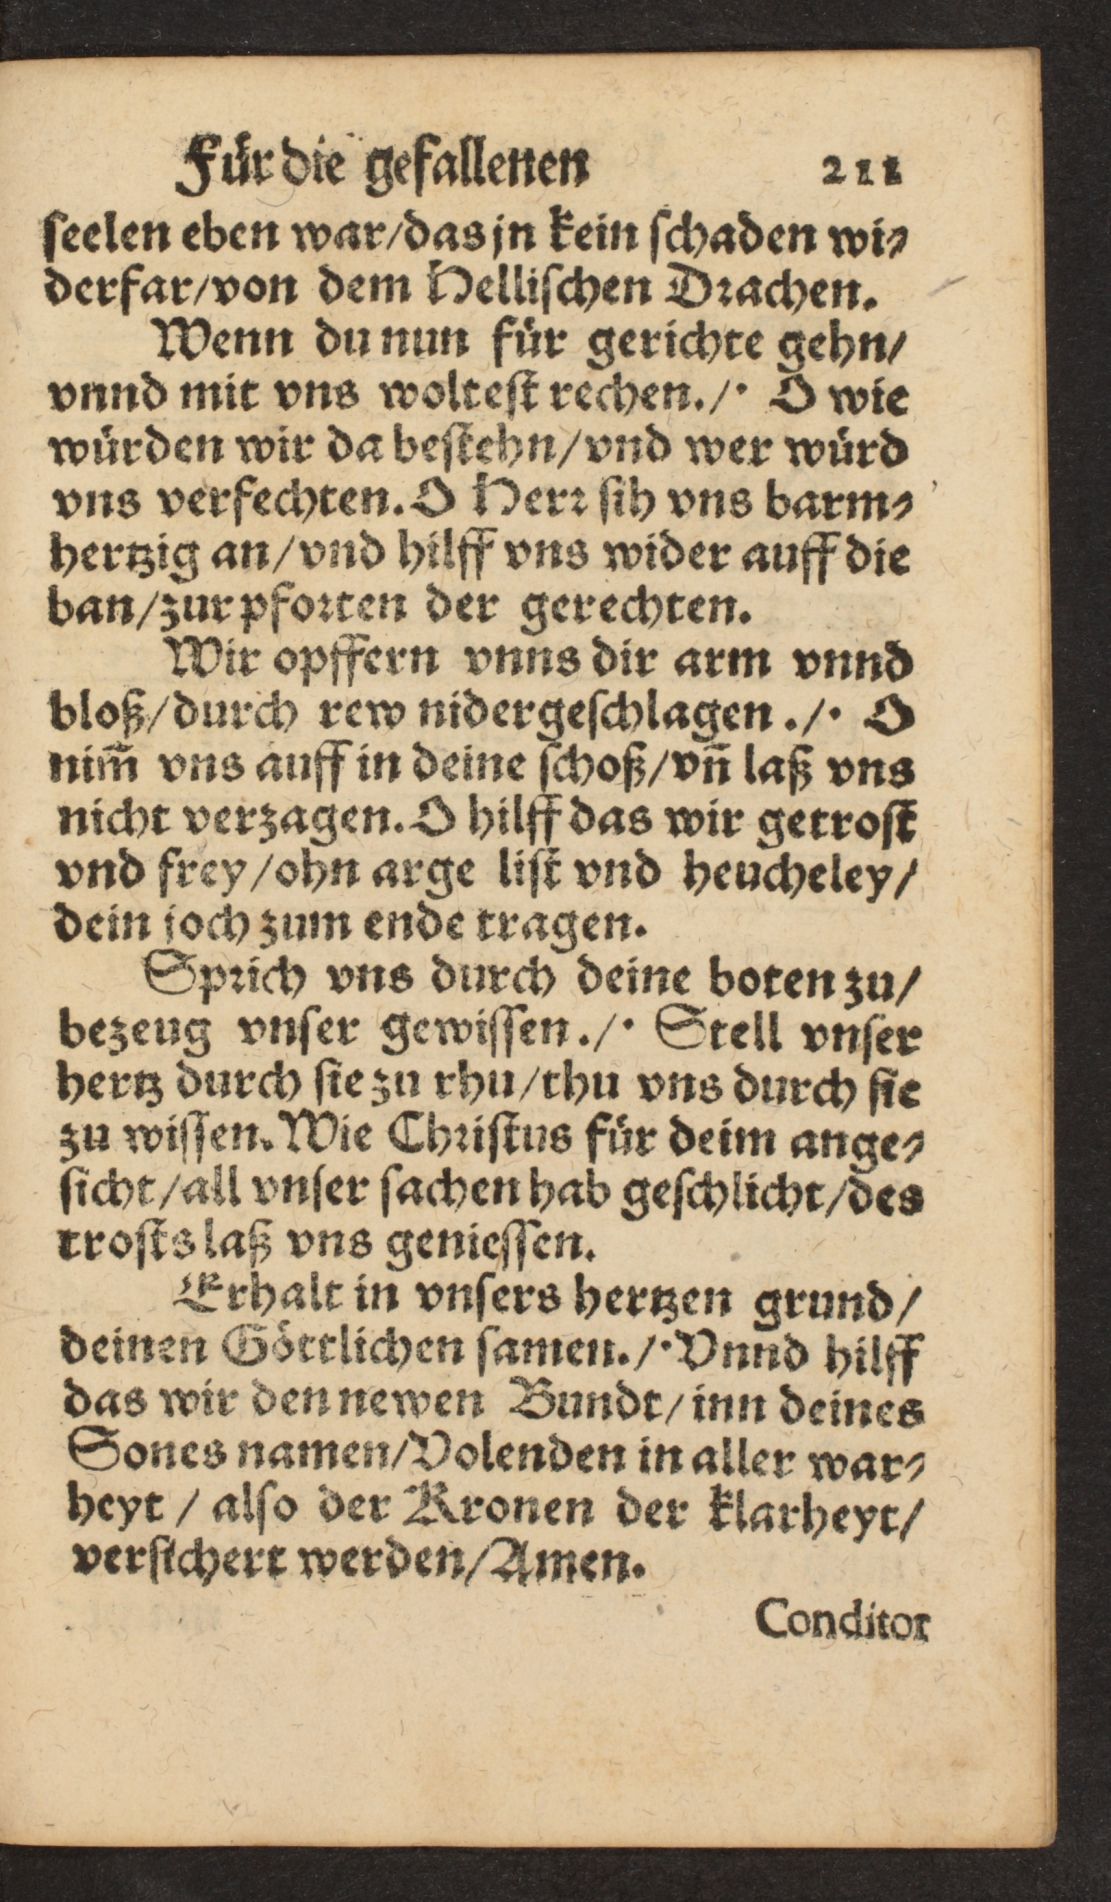 Für die gefallenen 211
seelen eben war/das jn kein schaden wi⸗
derfar/von dem Hellischen Drachen.
Wenn du nun für gerichte gehn/
vnnd mit vns woltest rechen./· O wie
würden wir da bestehn/vnd wer würd
vns verfechten. O Herr sih vns barm⸗
hertzig an/vnd hilff vns wider auff die
ban/zur pforten der gerechten.
Wir opffern vnns dir arm vnnd
bloß/durch rew nidergeschlagen./· O
nim̃ vns auff in deine schoß/vñ laß vns
nicht verzagen. O hilff das wir getrost
vnd frey/ohn arge list vnd heucheley/
dein joch zum ende tragen.
Sprich vns durch deine boten zu/
bezeug vnser gewissen./· Stell vnser
hertz durch sie zu rhu/thu vns durch sie
zu wissen. Wie Christus für deim ange⸗
sicht/all vnser sachen hab geschlicht/des
trosts laß vns geniessen.
Erhalt in vnsers hertzen grund/
deinen Göttlichen samen./· Vnnd hilff
das wir den newen Bundt/inn deines
Sones namen/Volenden in aller war⸗
heyt/also der Kronen der klarheyt/
versichert werden/Amen.
Conditor